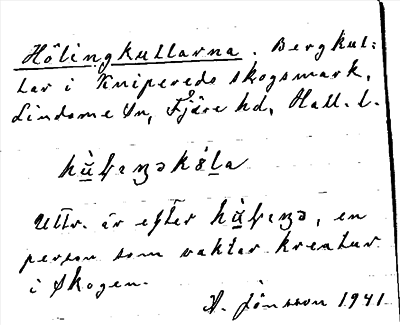 Hölingkullarna. Bergkul-
lar i Knipereds skogsmark,
Lindome sn, Fjäre hd, Hall. l.
Uttr. är efter
, en
person som vaktar kreatur
i skogen.
A. Jönsson 1941